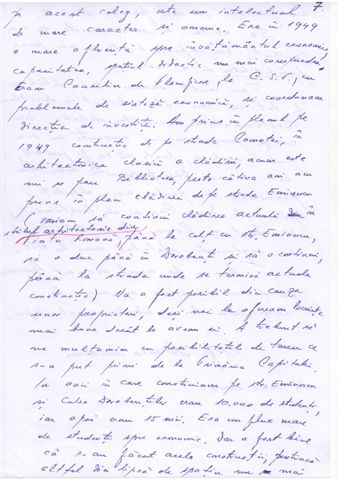 7
pe acest coleg, este un intelectual
de mare caracter și omenie. Era în 1949
o mare afluență spre învățământul economic,
capacitatea, spațiul didactic nu mai corespundea.
Eram Consilier de Planificare, la C.S.P., cu
problemele de sinteză economică, și coordonam
direcția de investiții. Am prins în planul pe
1949 construcția de pe strada Comăței, în
arhitectonica clasică a clădirii, acum este
mi se pare Biblioteca, peste câțiva ani am
prins în plan clădirea de pe strada Eminescu
(voiam să continui clădirea actuală în
stilul arhitectonic din
P-ța Romană, până la colț cu str. Eminescu,
să o duc până în Dorobanți și să o continui,
până la strada unde se termină actuala
construcție) Nu a fost posibil din cauza
unor proprietari, deși noi le ofeream locuințe
mai bune decât le aveau ei. A trebuit să
ne mulțumim cu posibilitățile de teren ce
s-a putut primi de la Primăria Capitalei.
În anii în care construiam pe str. Eminescu
și Calea Dorobanților erau 10.000 de studenți,
iar apoi erau 15 mii. Era un flux mare
de studenți spre economie. Dar a fost bine
că s-au făcut acele construcții, pentru că
altfel din lipsă de spațiu nu mai